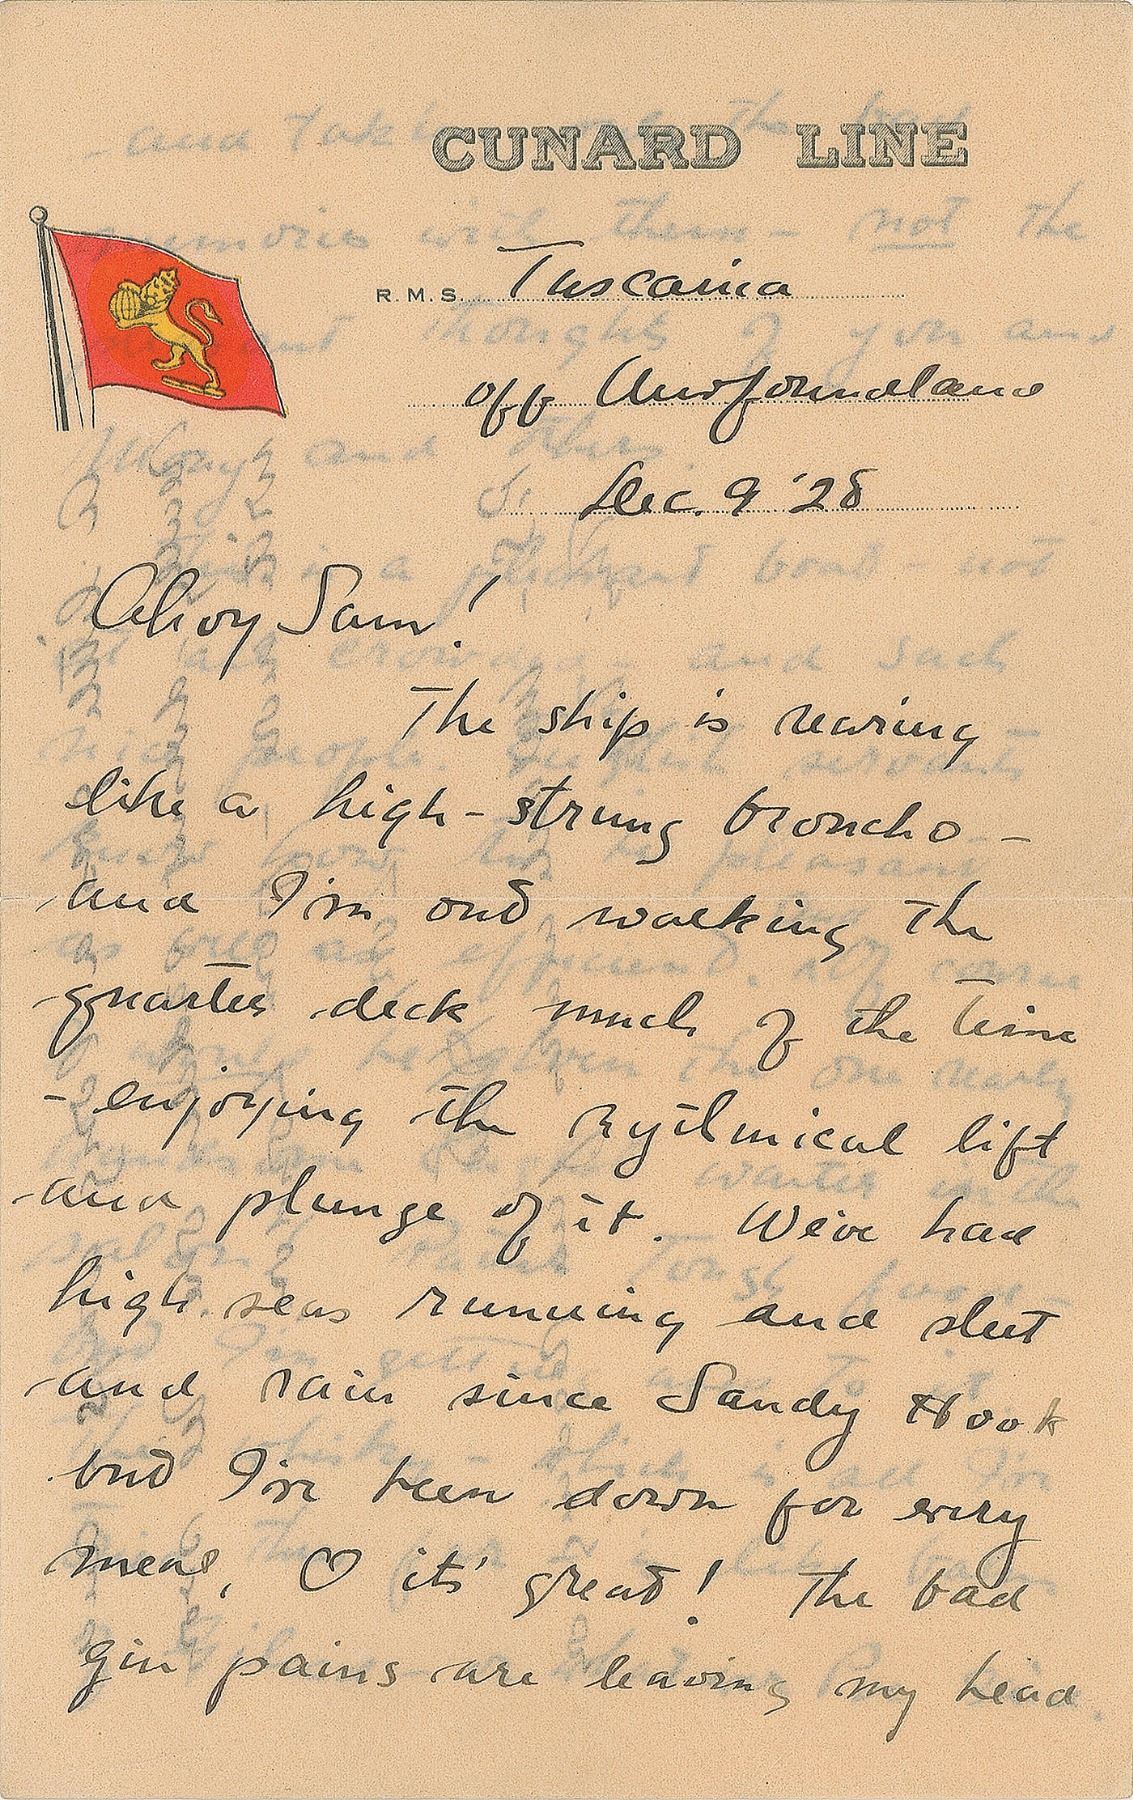 CUNARD LINE
R.M.S. Tuscania
off Newfoundland
Dec. 9 '28
Ahoy Sam!
The ship is rearing
like a high-strung broncho -
and I'm out walking the
quarter deck much of the time
- enjoying the rythmical lift
and plunge of it. We've had
high seas running and sleet
and rain since Sandy Hook
but I've been down for every
meal, O it's great! The bad
gin pains are leaving my head.